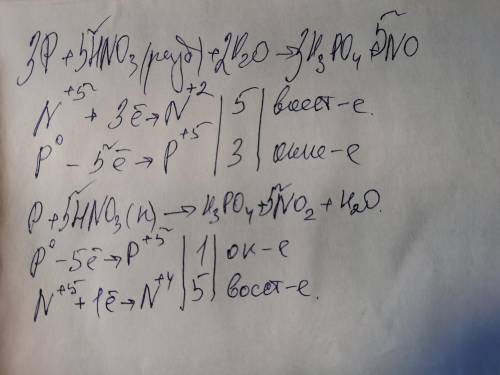 3P + 5HNO₃(разб) + 2H₂O → 3H₃PO₄ + 5NO
N⁺⁵ + 3ē → N⁺² | 5 | восст-е.
P⁰ - 5ē → P⁺⁵ | 3 | окис-е
P + 5HNO₃(к) → H₃PO₄ + 5NO₂ + H₂O.
P⁰ - 5ē → P⁺⁵ | 1 | ок-е
N⁺⁵ + 1ē → N⁺⁴ | 5 | восст-е.